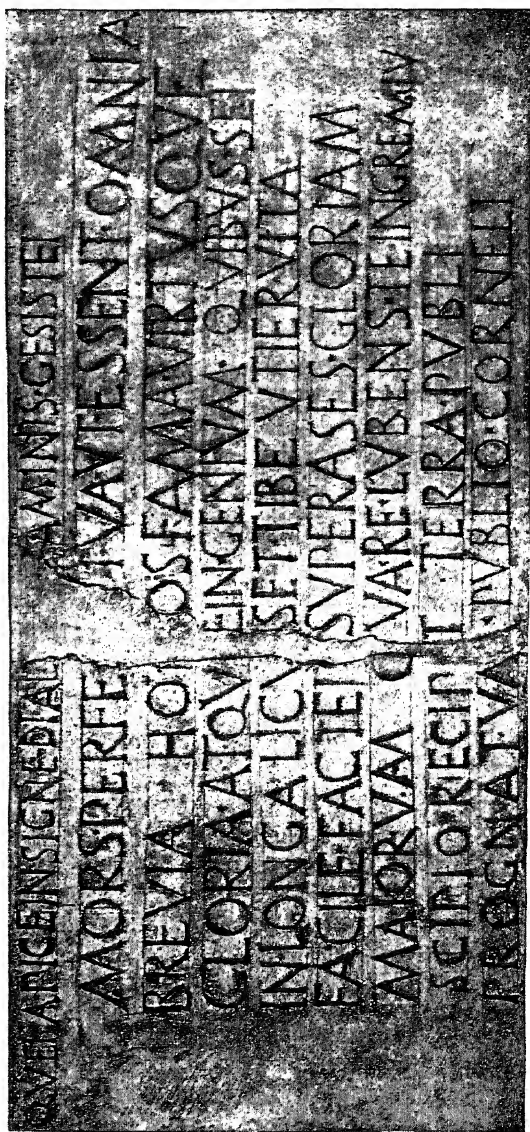 QVEI APICE INSIGNE DIAL AMINIS·GESISTEI
MORS PERFE TVA VT ESSENT OMNIA
BREVIA HO OS FAMA VIRTVSQVE
GLORIA ATQV EINGENIVM· QVIBVS SEI
IN LONGA LICV SET TIBE VTIER VITA
FACILE FACTEI SVPERASES·GLORIAM
MAIORVM QVA·RE·LVBENS·TE IN GREMIV
SCIPIO RECIP T TERRA PVBLI
PROGNATVM PVBLIO·CORNELI